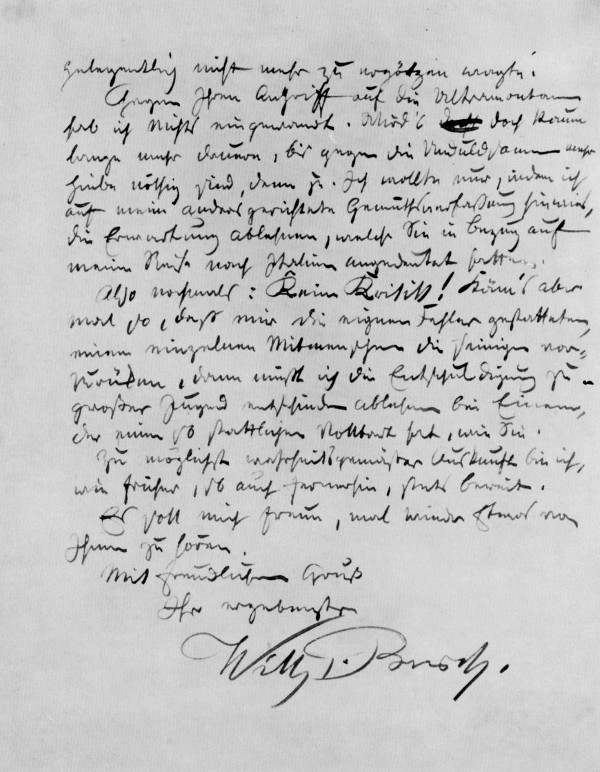 gelegentlich nicht mehr zu ergötzen wagte.
Gegen Ihren Angriff auf die Ultramontanen
hab ich Nichts eingewandt. Wird's doch kaum
lange mehr dauern, bis gegen die Unduldsamen mehr
Hiebe nöthig sind, denn je. Ich wollte nur, indem ich
auf meine anders gerichtete Gemüthsverfaßung hinwies,
die Erwartung ablehnen, welche Sie in Bezug auf
meine Reise nach Italien angedeutet hatten.
Also nochmals: Keine Kritik! Käm's aber
mal so, daß mir die eignen Fehler gestatteten,
einem einzelnen Mitmenschen die seinigen vor-
zurücken, dann müßt ich die Entschuldigung zu
großer Jugend entschieden ablehnen bei Einem,
der einen so stattlichen Vollbart hat, wie Sie.
Zu möglichst wahrheitsgemäßer Auskunft bin ich,
wie früher, so auch fernerhin, stets bereit.
Es soll mich freun, mal wieder Etwas von
Ihnen zu hören.
Mit freundlichem Gruß
Ihr ergebenster
Wilh. Busch.